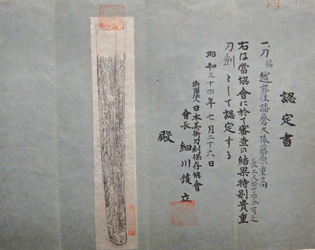 認定書
一、刀 銘 越前住播磨大掾藤原重高
長二尺四寸四分有之
右は當協會に於て審査の結果特別貴重
刀劍として認定する
昭和三十四年七月二十六日
財團法人日本美術刀劍保存協會
會長 細川護立
殿